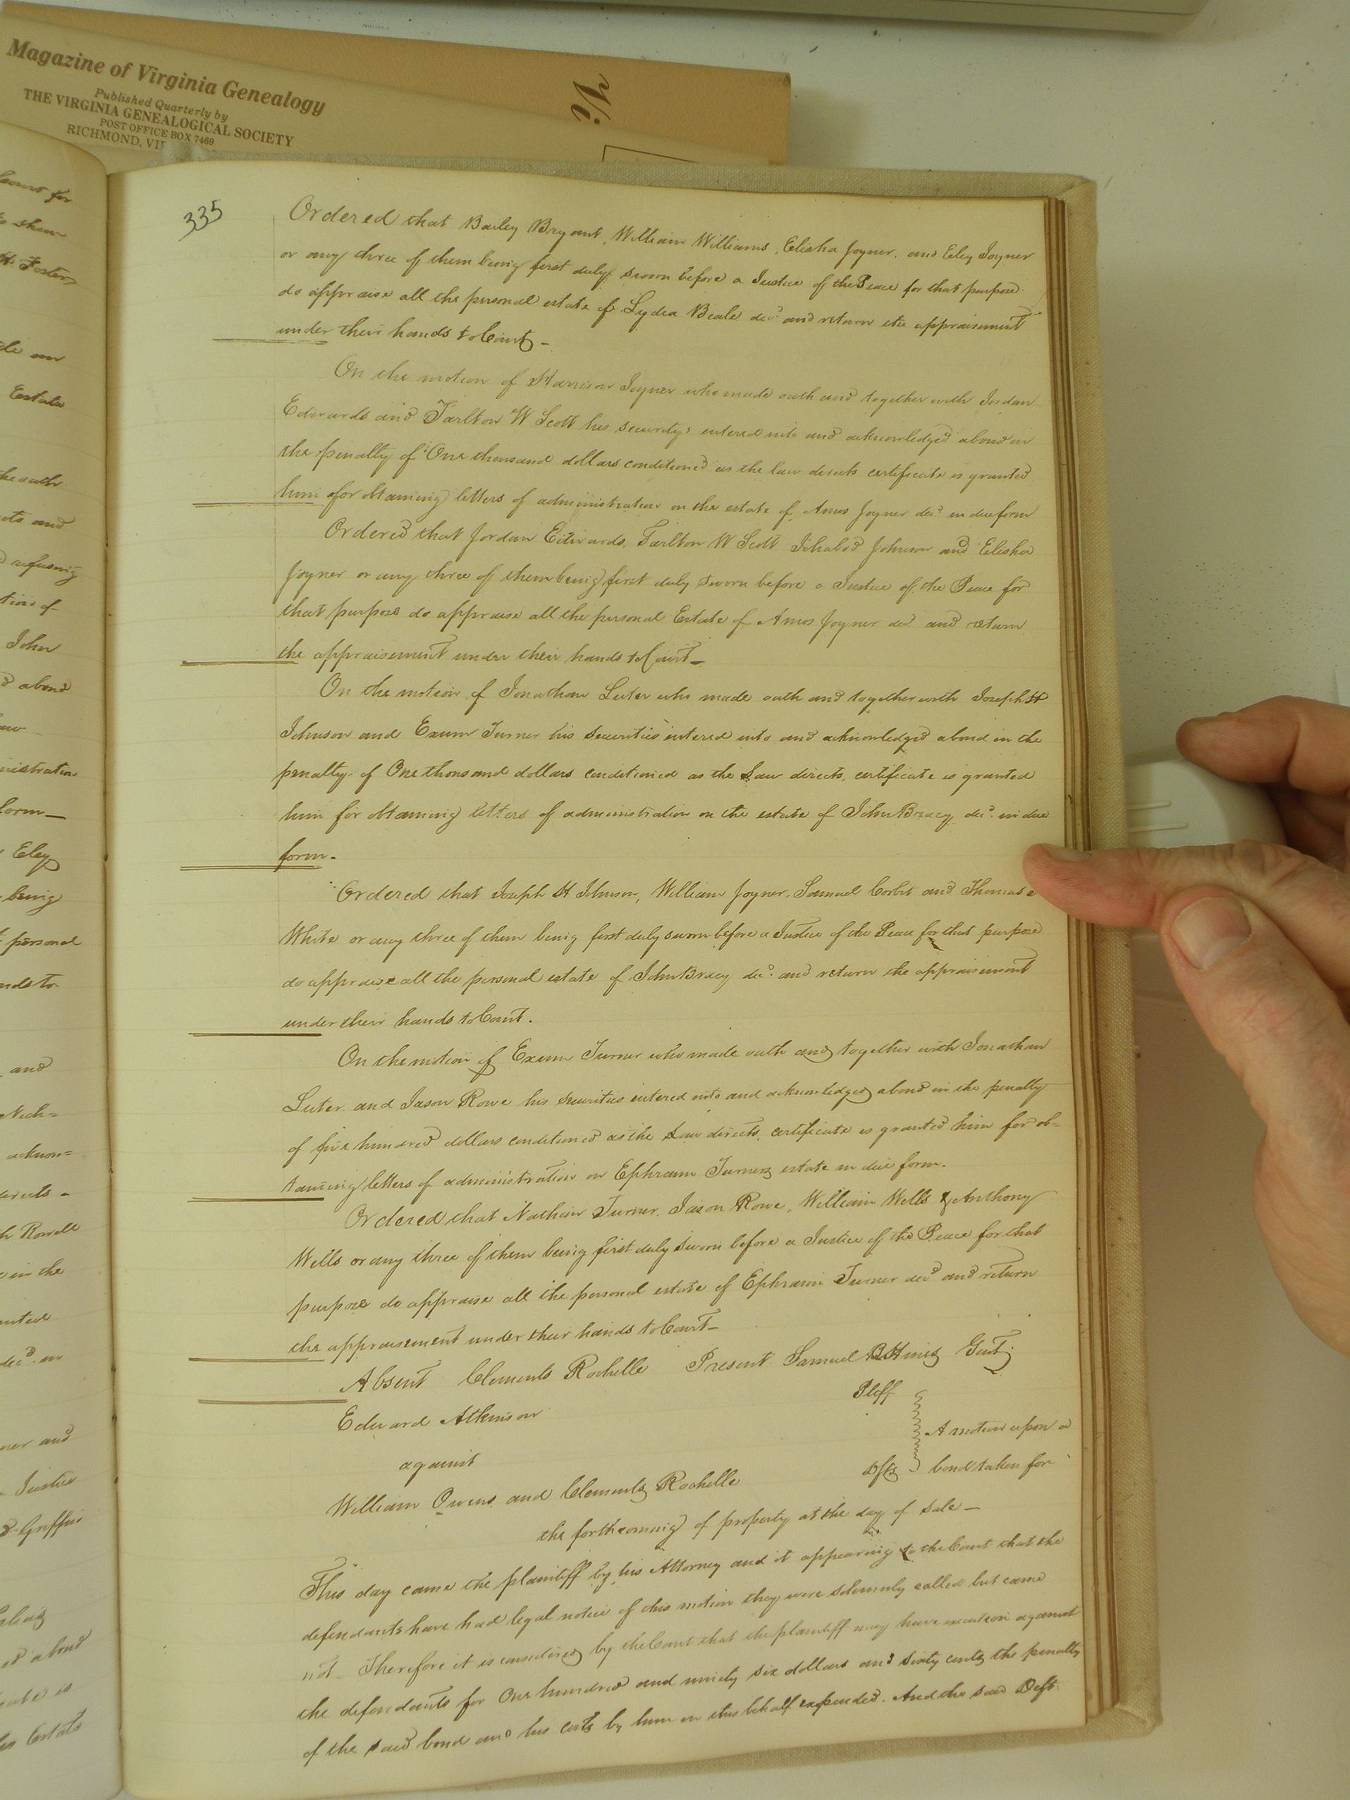 Magazine of Virginia Genealogy
Published Quarterly by
THE VIRGINIA GENEALOGICAL SOCIETY
POST OFFICE BOX 7469
RICHMOND, VI
335
Ordered that Bailey Bryant, William Williams, Elisha Joyner, and Eley Joyner
or any three of them being first duly sworn before a Justice of the Peace for that purpose
do appraise all the personal estate of Lydia Beale decd and return the appraisement
under their hands to Court –
On the motion of Harrison Joyner who made oath and together with Jordan
Edwards and Tarlton W Scott his securitys entered into and acknowledged a bond in
the penalty of One thousand dollars conditioned as the law directs certificate is granted
him for obtaining letters of administration on the estate of Amos Joyner decd in due form
Ordered that Jordan Edwards, Tarlton W Scott Ichabod Johnson and Elisha
Joyner or any three of them being first duly sworn before a Justice of the Peace for
that purpose do appraise all the personal Estate of Amos Joyner decd and return
the appraisement under their hands to Court –
On the motion of Jonathan Luter who made oath and together with Joseph H
Johnson and Exum Turner his securities entered into and acknowledged a bond in the
penalty of One thousand dollars conditioned as the Law directs, certificate is granted
him for obtaining letters of administration on the estate of John Bracy decd in due
form –
Ordered that Joseph H Johnson, William Joyner, Samuel Corbit and Thomas
White or any three of them being first duly sworn before a Justice of the Peace for that purpose
do appraise all the personal estate of John Bracy decd and return the appraisement
under their hands to Court.
On the motion of Exum Turner who made oath and together with Jonathan
Luter and Jason Rowe his securities entered into and acknowledged a bond in the penalty
of five hundred dollars conditioned as the Law directs, certificate is granted him for ob=
taining letters of administration on Ephraim Turners estate in due form.
Ordered that Nathan Turner, Jason Rowe, William Wells & Anthony
Wells or any three of them being first duly sworn before a Justice of the Peace for that
purpose do appraise all the personal estate of Ephraim Turner decd and return
the appraisement under their hands to Court –
Absent Clements Rochelle Present Samuel B Hines Gent
Edward Atkinson Pltff
against A motion upon a
William Owens and Clements Rochelle Dfts bond taken for
the forthcoming of property at the day of sale –
This day came the plaintiff by his Attorney and it appearing to the Court that the
defendants have had legal notice of this motion they were solemnly called but came
not – Therefore it is considered by the Court that the plaintiff may have execution against
the defendants for One hundred and ninety six dollars and sixty cents the penalty
of the said bond and his costs by him in this behalf expended. And the said Deft